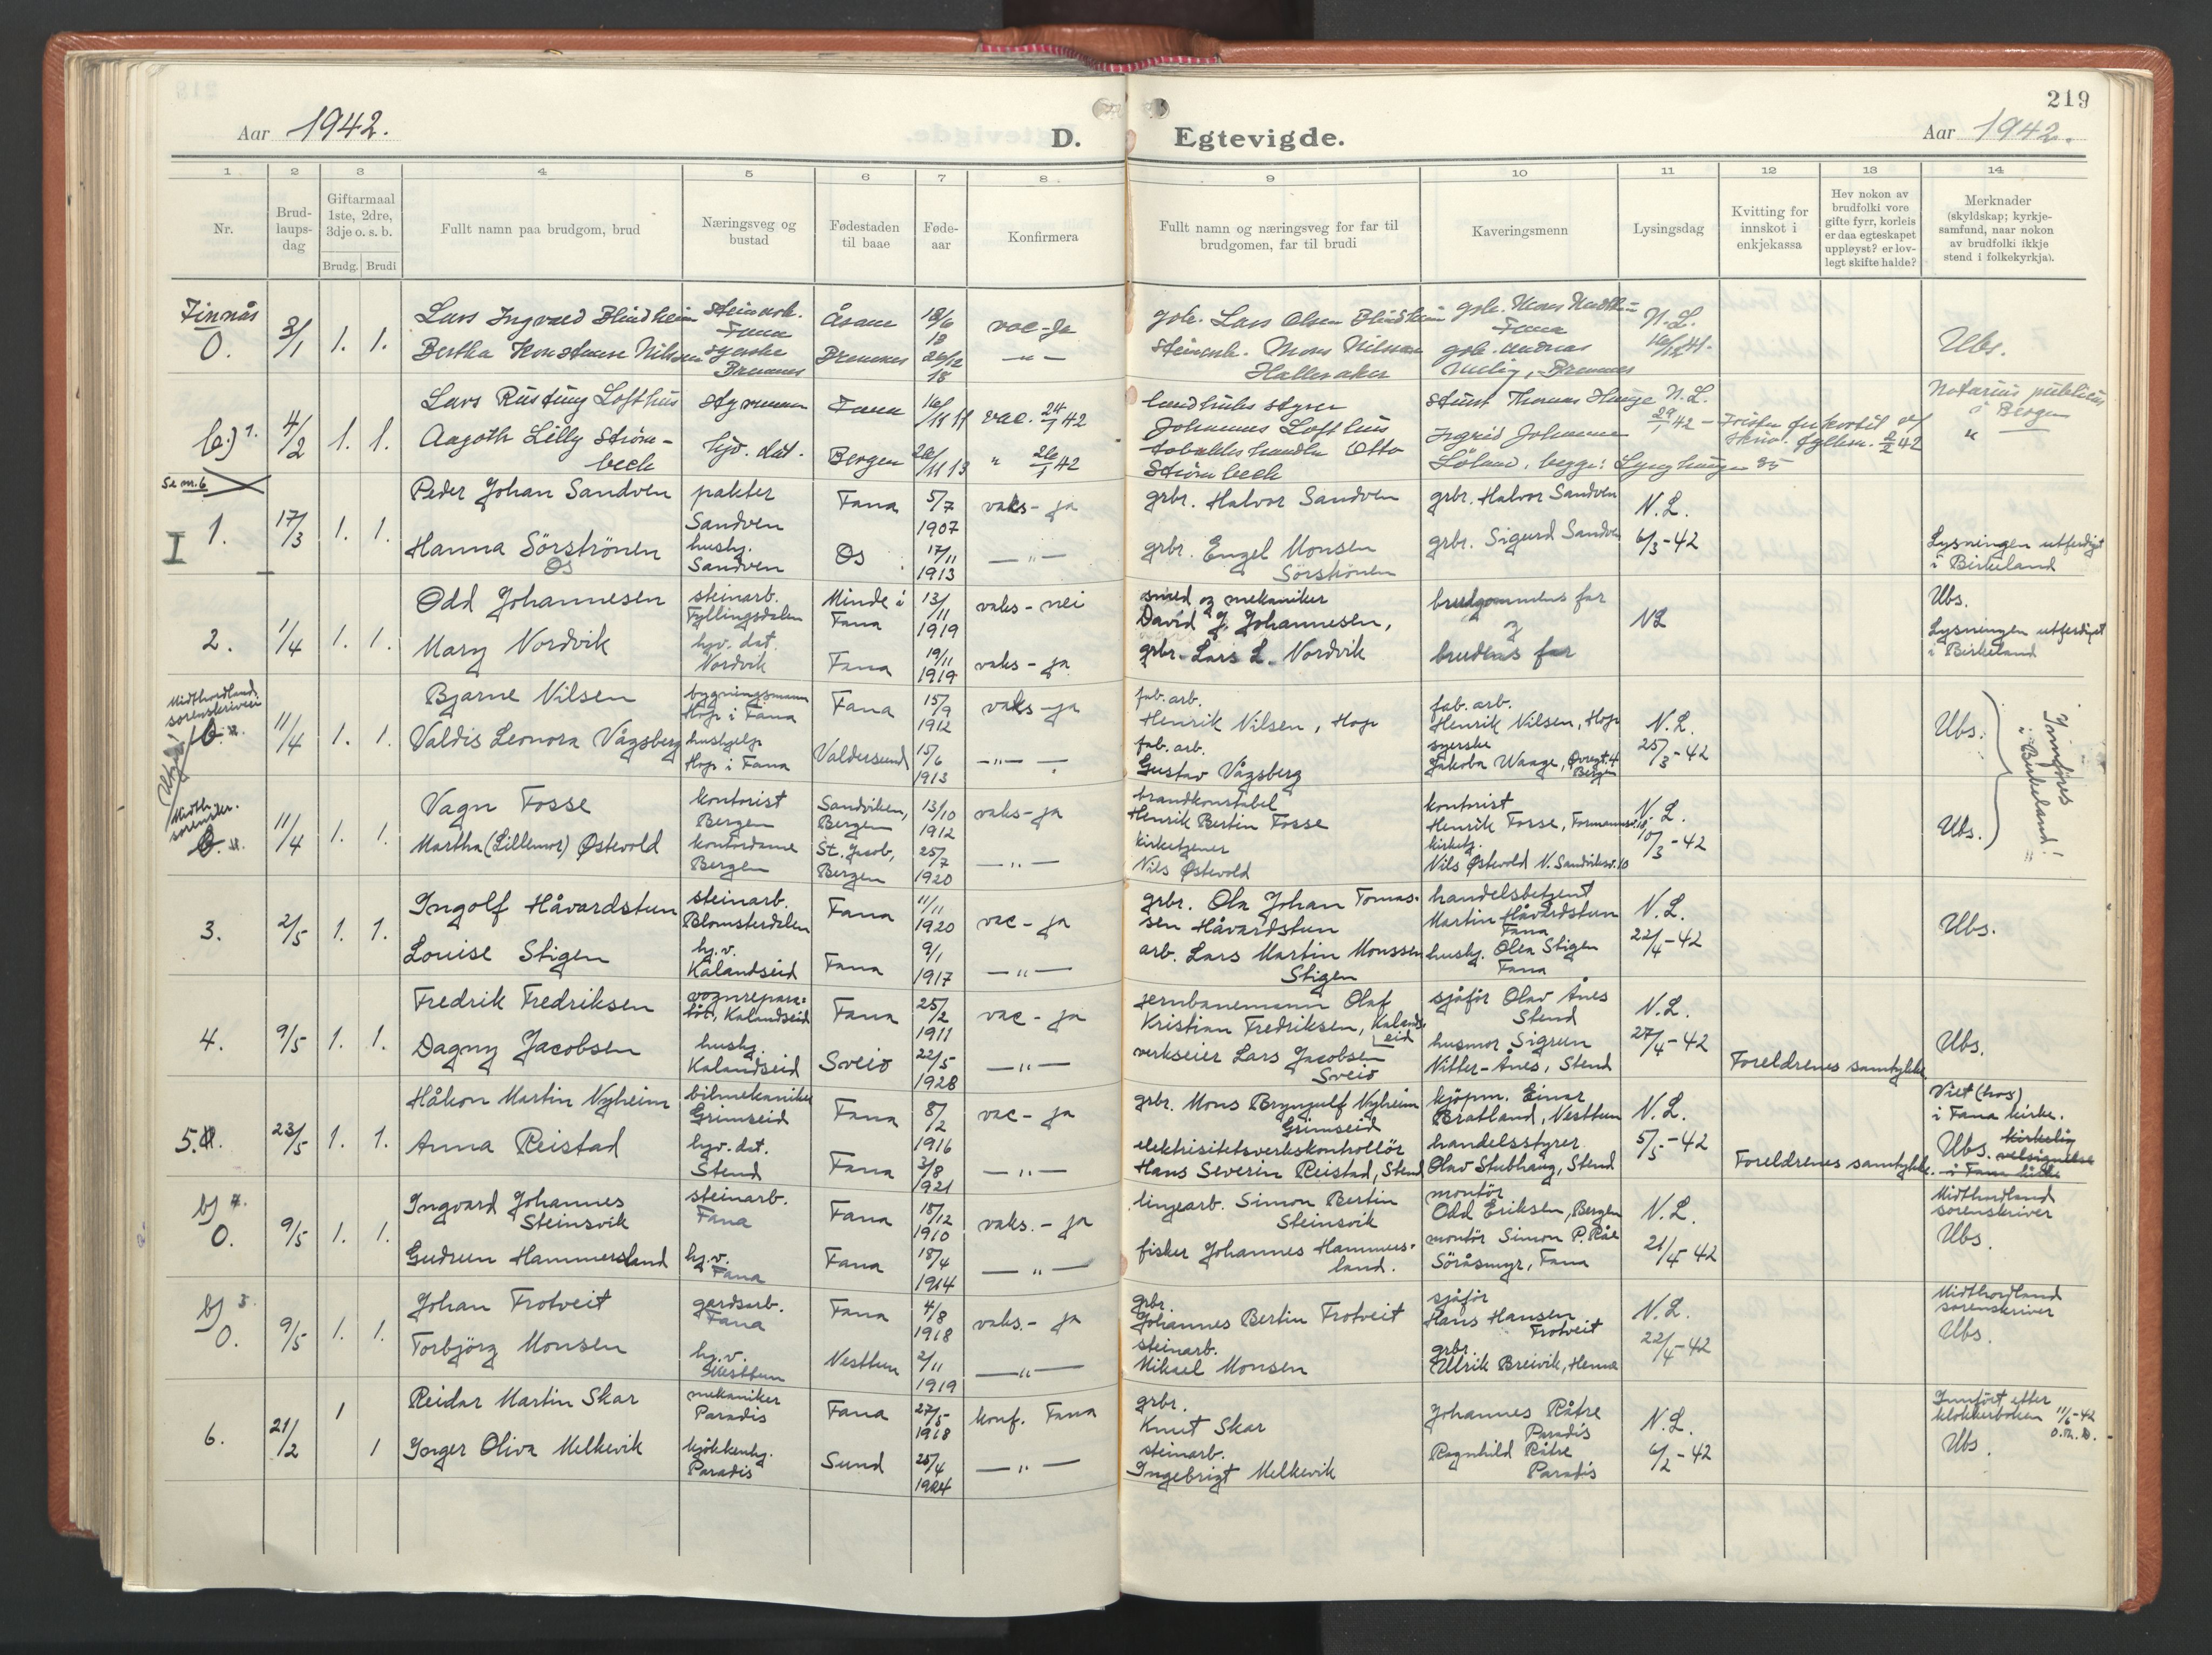 219
Aar 1942.
D.
Egtevigde.
Aar 1942.
1 2 3 4 5 6 7 8 9 10 11 12 13 14
Nr.
Brud-
laups-
dag
Giftarmaal
1ste, 2dre,
3dje o. s. b.
Brudg. Brudi
Fullt namn paa brudgom, brud
Næringsveg og
bustad
Fødestaden
til baae
Føde-
aar
Konfirmera
Fullt namn og næringsveg for far til
brudgomen, far til brudi
Kaveringsmenn
Lysingsdag
Kvitting for
innskot i
enkjekassa
Hev nokon av
brudfolki vore
gifte fyrr, korleis
er daa egteskapet
uppløyst? er lov-
legt skifte halde?
Merknader
(skyldskap; kyrkje-
samfund, naar nokon
av brudfolki ikkje
stend i folkekyrkja).
Finnås
0. 3/1 1. 1.
Lars Ingvald Blindheim
Fana
Åsane
18/6
vac - ja
Lars Olsen Blindheim
Fana
N. L.
Bertha Konstanse Nilsen
syerske
Bremnes
Bremnes
26/12
18
— " —
Mons Nilsen
Hallevaker
Bremnes
Ubs.
b.) 1. 4/2 1. 1.
Lars Rusting Lofthus
styrmann
Fana
16/11 11
vac. 24/1 42
Johannes Lofthus
N. L.
29/1 42
Notarius publicus
i Bergen
Aagoth Lilly Strøm-
beck
hjv. dat.
Bergen
26/11 13
" 26/1 42
tobakkshandler Otto
Strømbeck
Ingrid Johanne
"
Se nr. 6
I 1. 17/3 1. 1.
Peder Johan Sandven
pakter
Sandven
Fana
5/7
1907
vaks - ja
grbr. Halvor Sandven
grbr. Halvor Sandven
N. L.
6/3 - 42
Hanna Sörströnen
Os
hushj.
Sandven
Os
17/11
1913
— " —
grbr. Engel Monsen
Sörströnen
grbr. Sigurd Sandven
Lysningen utferdiget
i Birkeland
2. 1/4 1. 1.
Odd Johannesen
steinarb.
Fyllingsdalen
Minde i
Fana
13/11
1919
vaks - nei
smed og mekaniker
David J. Johannesen,
brudgommens far
og
NL
Ubs.
Lysningen utferdiget
i Birkeland
Mary Nordvik
hjv. dat.
Nordvik
Fana
19/11
1919
vaks - ja
grbr. Lars L. Nordvik
brudens far
Midthordland
sorenskriveri
11/4 1. 1.
Bjarne Nilsen
bygningsmann
Hop i Fana
Fana
15/9
1912
vaks - ja
fab. arb.
Henrik Nilsen, Hop
fab. arb.
Henrik Nilsen, Hop
N. L.
25/3 - 42
Ubs.
Valdis Leonora Vågsberg
hushjelp
Hop i Fana
Valdersund
15/6
1913
— " —
fab. arb.
Gustav Vågsberg
syerske
Jakoba Waage, Øvregt. 4
Bergen
Innføres
i Birkeland!
Midth.
sorenskr.
11/4 1. 1.
Vagn Fosse
kontorist
Bergen
Sandviken,
Bergen
13/10
1912
vaks - ja
brandkonstabel
Henrik Bertin Fosse
kontorist
N. L.
10/3 - 42
Ubs.
Martha (Lillemor) Østevold
kontordame
Bergen
St. Jacob,
Bergen
25/7
1920
— " —
kirketjener
Nils Østevold
kirketj.
Nils Østevold N. Sandviksv. 10
3. 2/5 1. 1.
Ingolf Håvardstun
steinarb.
Blomsterdalen
Fana
11/11
1920
vac - ja
grbr. Ola Johan Tomas-
sen Håvardstun
handelsbetjent
Martin Håvardstun
Fana
N. L.
22/4 - 42
Ubs.
Louise Stigen
hj. v.
Kalandseid
Fana
9/1
1917
— " —
arb. Lars Martin Monssen
Stigen
hushj. Olea Stigen
Fana
4. 9/5 1. 1.
Fredrik Fredriksen
vognrepara-
tör, Kalandseid
Fana
25/2
1911
vac - ja
jernbanemann Olaf
Kristian Fredriksen, Kalands-
eid
sjåför Olav Ånes
Stend
N. L.
27/4 - 42
Ubs.
Dagny Jacobsen
hushj.
Kalandseid
Sveio
22/5
1928
— " —
verkseier Lars Jacobsen
Sveio
husmor Sigrun
Nitter-Ånes, Stend
Foreldrenes samtykke
5. 23/5 1. 1.
Håkon Martin Nyheim
bilmekaniker
Grimseid
Fana
8/2
1916
vac - ja
grbr. Mons Brynjulf Nyheim
Grimseid
kjöpm. Einar
Bratland, Nesttun
N. L.
5/5 - 42
Viet (hos)
i Fana kirke.
Anna Reistad
hjv. dat.
Stend
Fana
3/8
1921
— " —
elektrisitetsverkskontrollör
Hans Severin Reistad, Stend
handelsstyrer
Olav Stubhaug, Stend
Foreldrenes samtykke.
Ubs. kirkelig
velsignelse
i Fana kirke
b) 4.
0. 9/5 1. 1.
Ingvard Johannes
Steinsvik
steinarb.
Fana
Fana
18/12
1910
vaks. - ja
linjearb. Simon Bertin
Steinsvik
montör
Odd Eriksen, Bergen
N. L.
21/4 - 42
Midthordland
sorenskriver
Ubs.
Gudrun Hammersland
hj. v.
Fana
Fana
18/4
1914
— " —
fisker Johannes Hammers-
land.
montör Simon P. Råe
Söråsmyr, Fana
b) 3.
0. 9/5 1. 1.
Johan Trotveit
gardsarb.
Fana
Fana
4/8
1918
vaks. - ja
grbr.
Johannes Bertin Trotveit
sjåför
Hans Hansen
Trotveit
N. L.
22/4 - 42
Midthordland
sorenskriver
Ubs.
Torbjörg Monsen
hj. v.
Nesttun
Nesttun
2/11
1919
— " —
steinarb.
Mikael Monsen
grbr.
Ullrik Breivik, Henna
6. 21/2 1
Reidar Martin Skar
mekaniker
Paradis
Fana
27/5
1918
konf. Fana
grbr.
Knut Skar
Johannes Råtre
Paradis
N. L.
6/2 - 42
Innfört etter
klokkerboken 11/6 - 42
Ubs.
1
Inger Oliva Melkevik
kjökkenhj.
Paradis
Sund
25/4
1924
— " —
steinarb.
Ingebrigt Melkevik
Ragnhild Råtre
Paradis